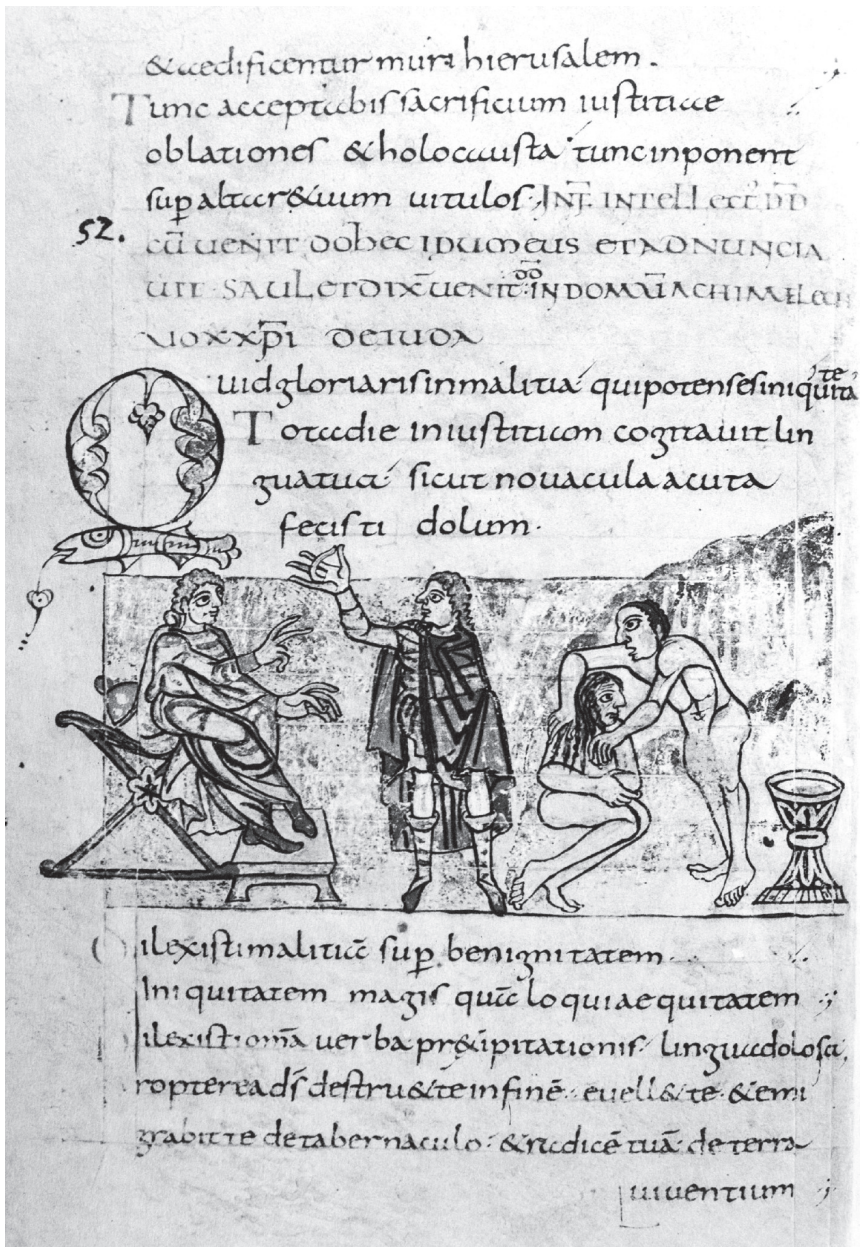 &aedificentur muri hierusalem.
Tunc acceptabis sacrificium iustitiae
oblationes & holocausta tunc inponent
sup altar& uum uitulos. IN F̄. INTELLECT D̄D
52.
cū UENIT DOhEC IDUMEUS ET ADNUNCIA
UIT SAUL ET DIX̄ UENIT IN DOMŪ ACHIMELECH
UOX XP̄I DE IUDA
Quid gloriaris in malitia qui potens es iniquita te
Tota die iniustitiam cogitauit lin
gua tua sicut nouacula acuta
fecisti dolum.
ilexisti malitiā sup benignitatem
Iniquitatem magis quā loqui aequitatem
ilexisti om̄a uerba pr&ipitationis lingua dolosa,
ropterea d̄s destru& te in finē euell& te & emi
grabit te de tabernaculo & radicē tuā de terra
uiuentium